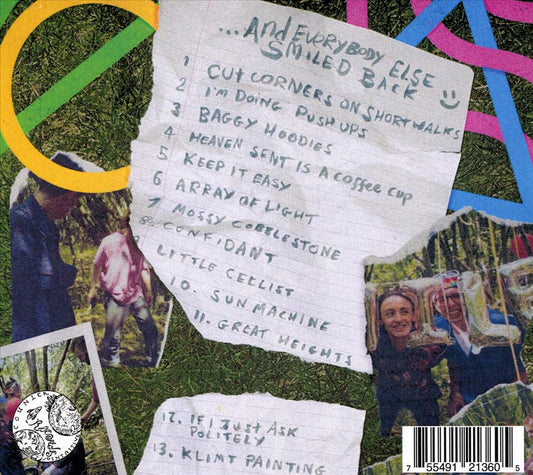 ...AND EVERYBODY ELSE
SMILED BACK
1 CUT CORNERS ON SHORT WALKS
2 I'M DOING PUSH UPS
3 BAGGY HOODIES
4 HEAVEN SENT IS A COFFEE CUP
5 KEEP IT EASY
6 ARRAY OF LIGHT
7 MOSSY COBBLESTONE
8. CONFIDANT
LITTLE CELLIST
10. SUN MACHINE
11. GREAT HEIGHTS
12. IF I JUST ASK
POLITELY
13. KLIMT PAINTING
7 55491 21360 5